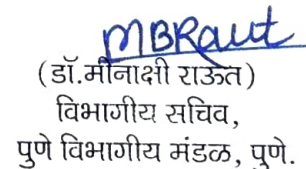 MBRaut
(डॉ.मीनाक्षी राऊत)
विभागीय सचिव,
पुणे विभागीय मंडळ, पुणे.